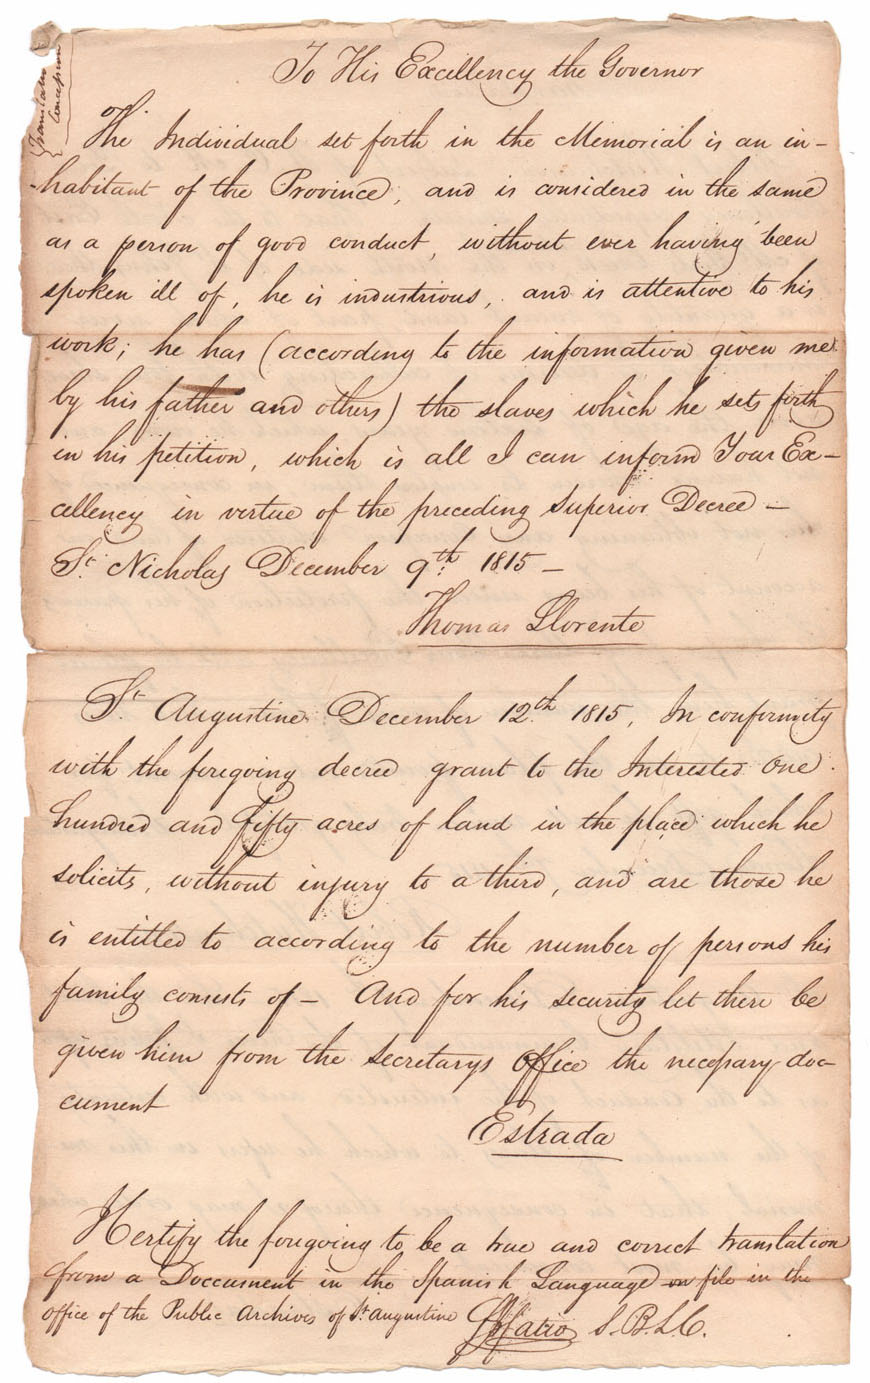 Translation
Concession
To His Excellency the Governor
The Individual set forth in the Memorial is an in-
habitant of the Province, and is considered in the same
as a person of good conduct, without ever having been
spoken ill of, he is industrious, and is attentive to his
work; he has (according to the information given me
by his father and others) the slaves which he sets forth
in his petition, which is all I can inform Your Ex-
cellency in virtue of the preceding Superior Decree -
St. Nicholas December 9th. 1815 -
Thomas Llorente
St. Augustine December 12th. 1815, In conformity
with the foregoing decree grant to the Interested One
hundred and fifty acres of land in the place which he
solicits, without injury to a third, and are those he
is entitled to according to the number of persons his
family consists of - And for his security let there be
given him from the secretarys office the necessary doc-
cument
Estrada
I Certify the foregoing to be a true and correct translation
from a Doccument in the Spanish Language on file in the
Office of the Public Archives of St Augustine S.B.L.C.